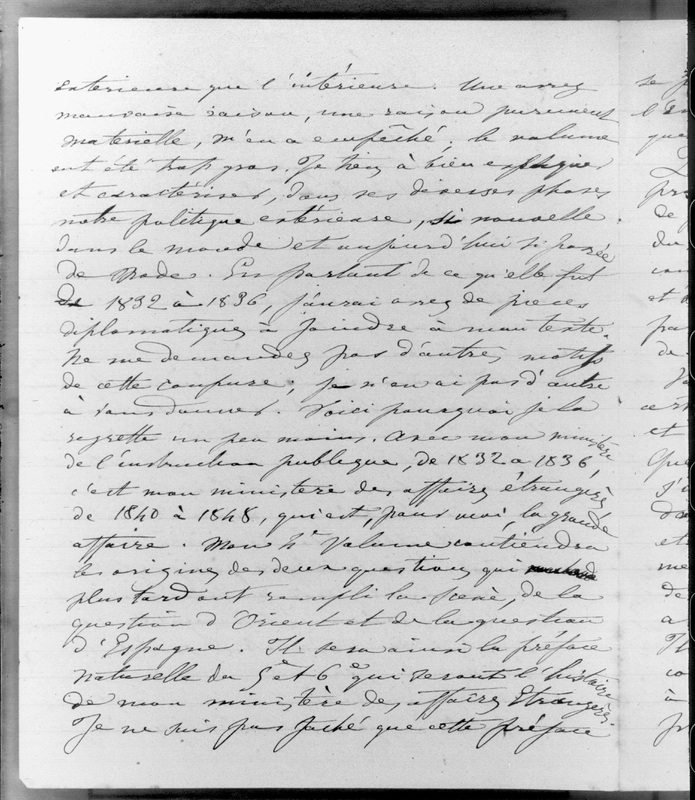 exterieure que l'intérieure. Une assez
mauvaise raison, une raison purement
materielle, m'en a empêché; le volume
eut été trop gros. Je tiens à bien expliquer
et caractériser, dans ses diverses phases
notre politique extérieure, si nouvelle
dans le monde et aujourd'hui si passée
de mode. En partant de ce qu'elle fut
de 1832 à 1836, j'aurai assez de pieces
diplomatiques à joindre à mon texte.
Ne me demandez pas d'autres motifs
de cette coupure; je n'en ai pas d'autre
à vous donner. Voici pourquoi je la
regrette un peu moins. Avec mon ministère
de l'instruction publique, de 1832 à 1836,
c'est mon ministere des affaires étrangères
de 1840 à 1848, qui est, pour moi, la grande
affaire. Mon 4e Volume contiendra
les origines des deux questions qui
plus tard ont rempli la scène, de la
question d'Orient et de la question
d'Espagne. Il sera ainsi la préface
naturelle du 5e et 6e qui seront l'histoire
de mon ministère des affaires Etrangères.
Je ne suis pas faché que cette préface
se
l'
que
de
du
et
pa
de
et
Que
J'
me
de
a
co
à